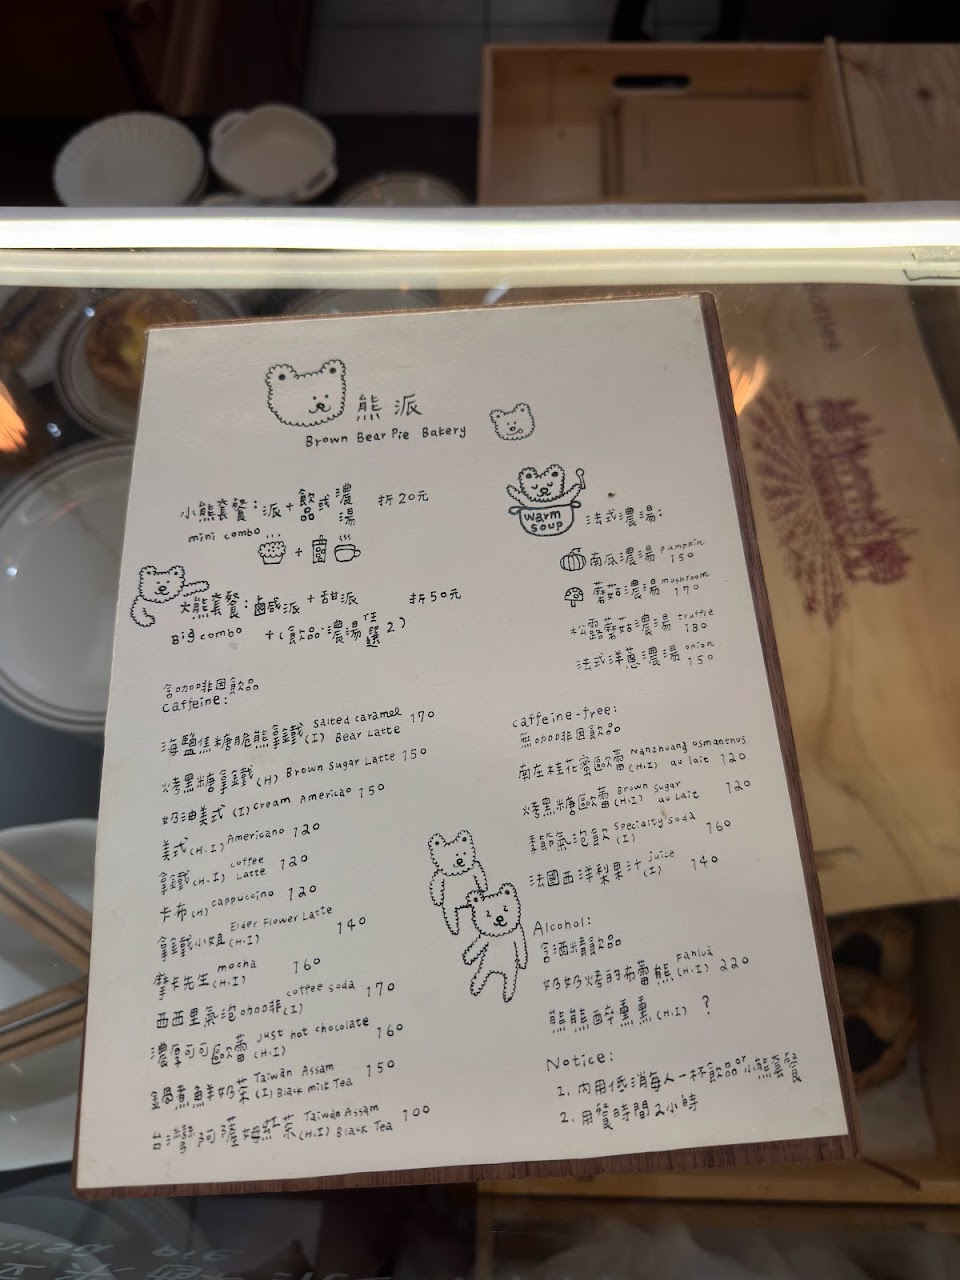 熊派
Brown Bear Pie Bakery
小熊套餐：派+飲品或濃湯 折20元
mini combo
大熊套餐：鹵咸派+甜派 折50元
Big combo +(飲品·濃湯任選2)
含咖啡因飲品
Caffeine:
海鹽焦糖脆熊拿鐵(I) Salted caramel Bear Latte 170
烤黑糖拿鐵(H) Brown Sugar Latte 150
奶油美式(I) Cream Americao 150
美式(H.I) Americano 120
拿鐵(H.I) coffee Latte 120
卡布(H) cappuccino 120
拿鐵小姐(H.I) Elder Flower Latte 140
摩卡先生(H.I) mocha 160
西西里氣泡咖啡(I) coffee soda 170
濃厚可可歐蕾(H.I) Just hot chocolate 160
鍋煮鮮奶茶(I) Taiwan Assam Black milk Tea 150
台灣阿薩姆紅茶(H.I) Taiwan Assam Black Tea 100
warm soup
法式濃湯：
南瓜濃湯 pumpkin 150
蘑菇濃湯 mushroom 170
松露蘑菇濃湯 truffle 180
法式洋蔥濃湯 onion 150
caffeine-free:
無咖啡因飲品
南庄桂花蜜歐蕾(H.I) Nanzhuang osmanthus au lait 120
烤黑糖歐蕾(H.I) Brown Sugar au Lait 120
季節氣泡飲(I) Specialty Soda 160
法國西洋梨果汁(I) juice 140
Alcohol:
含酒精飲品
奶奶烤的布蕾熊(H.I) Fahluà 220
熊熊醉熏熏(H.I) ?
Notice:
1. 內用低消每人一杯飲品or小熊套餐
2. 用餐時間2小時